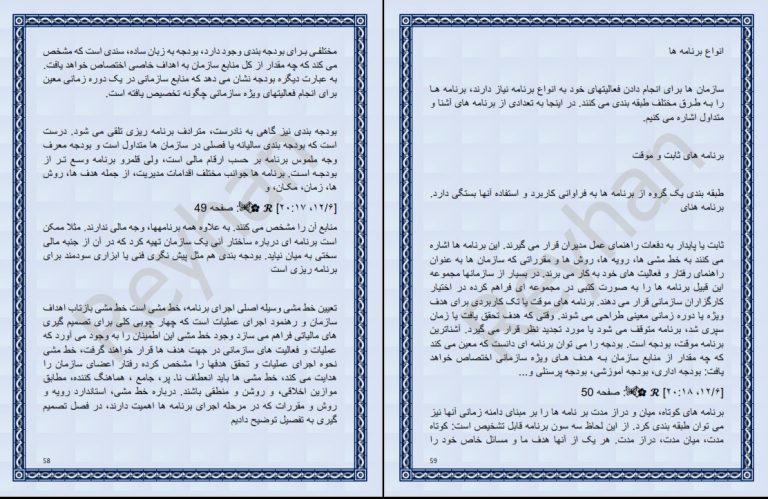 مختلفی برای بودجه بندی وجود دارد، بودجه به زبان ساده، سندی است که مشخص
می کند که چه مقدار از کل منابع سازمان به اهداف خاصی اختصاص خواهد یافت.
به عبارت دیگره بودجه نشان می دهد که منابع سازمانی در یک دوره زمانی معین
برای انجام فعالیتهای ویژه سازمانی چگونه تخصیص یافته است.
بودجه بندی نیز گاهی به نادرست، مترادف برنامه ریزی تلقی می شود. درست
است که بودجه بندی سالیانه یا فصلی در سازمان ها متداول است و بودجه معرف
وجه ملموس برنامه بر حسب ارقام مالی است، ولی قلمرو برنامه وسع تر از
بودجه است. برنامه ها جوانب مختلف اقدامات مدیریت، از جمله هدف ها، روش
ها، زمان، مکان، و
[۱۲/۶، ۲۰:۱۷] ℛ ✿: صفحه 49
منابع آن را مشخص می کنند. به علاوه همه برنامهها، وجه مالی ندارند. مثلا ممکن
است برنامه ای درباره ساختار آنی یک سازمان تهیه کرد که در آن از جنبه مالی
سختی به میان نیاید. بودجه بندی هم مثل پیش نگری فنی یا ابزاری سودمند برای
برنامه ریزی است
تعیین خط مشی وسیله اصلی اجرای برنامه، خط مشی است خط مشی بازتاب اهداف
سازمان و رهنمود اجرای عملیات است که چهار چوبی کلی برای تصمیم گیری
های مالیاتی فراهم می سازد وجود خط مشی این اطمینان را به وجود می آورد که
عملیات و فعالیت های سازمانی در جهت هدف ها قرار خواهند گرفت، خط مشی
نحوه اجرای عملیات و تحقق هدفها را مشخص کرده رفتار اعضای سازمان را
هدایت می کند، خط مشی ها باید انعطاف نا. پر، جامع ، هماهنگ کننده، مطابق
موازین اخلاقی، و روشن و منطقی باشند. درباره خط مشی، استاندارد رویه و
روش و مقررات که در مرحله اجرای برنامه ها اهمیت دارند، در فصل تصمیم
گیری به تفصیل توضیح دادیم
58
Reyhan
انواع برنامه ها
سازمان ها برای انجام دادن فعالیتهای خود به انواع برنامه نیاز دارند، برنامه ها
را به طرق مختلف طبقه بندی می کنند. در اینجا به تعدادی از برنامه های آشنا و
متداول اشاره می کنیم.
برنامه های ثابت و موقت
طبقه بندی یک گروه از برنامه ها به فراوانی کاربرد و استفاده آنها بستگی دارد.
برنامه هنای
ثابت یا پایدار به دفعات راهنمای عمل مدیران قرار می گیرند. این برنامه ها اشاره
می کنند به خط مشی ها، رویه ها، روش ها و مقرراتی که سازمان ها به عنوان
راهنمای رفتار و فعالیت های خود به کار می برند. در بسیار از سازمانها مجموعه
این قبیل برنامه ها را به صورت کتبی در مجموعه ای فراهم کرده در اختیار
کارگزاران سازمانی قرار می دهند. برنامه های موقت یا تک کاربردی برای هدف
ویژه یا دوره زمانی معینی طراحی می شوند. وقتی که هدف تحقق یافت یا زمان
سپری شد، برنامه متوقف می شود یا مورد تجدید نظر قرار می گیرد. آشناترین
برنامه موقت، بودجه است. بودجه را می توان برنامه ای دانست که معین می کند
که چه مقدار از منابع سازمان به هدف های ویژه سازمانی اختصاص خواهد
یافت: بودجه اداری، بودجه آموزشی، بودجه پرسنلی و...
[۱۲/۶، ۲۰:۱۸] ℛ ✿: صفحه 50
برنامه های کوتاه، میان و دراز مدت بر نامه ها را بر مبنای دامنه زمانی آنها نیز
می توان طبقه بندی کرد. از این لحاظ سه سون برنامه قابل تشخیص است: کوتاه
مدت، میان مدت، دراز مدت. هر یک از آنها هدف ما و مسائل خاص خود را
59
Reyhan